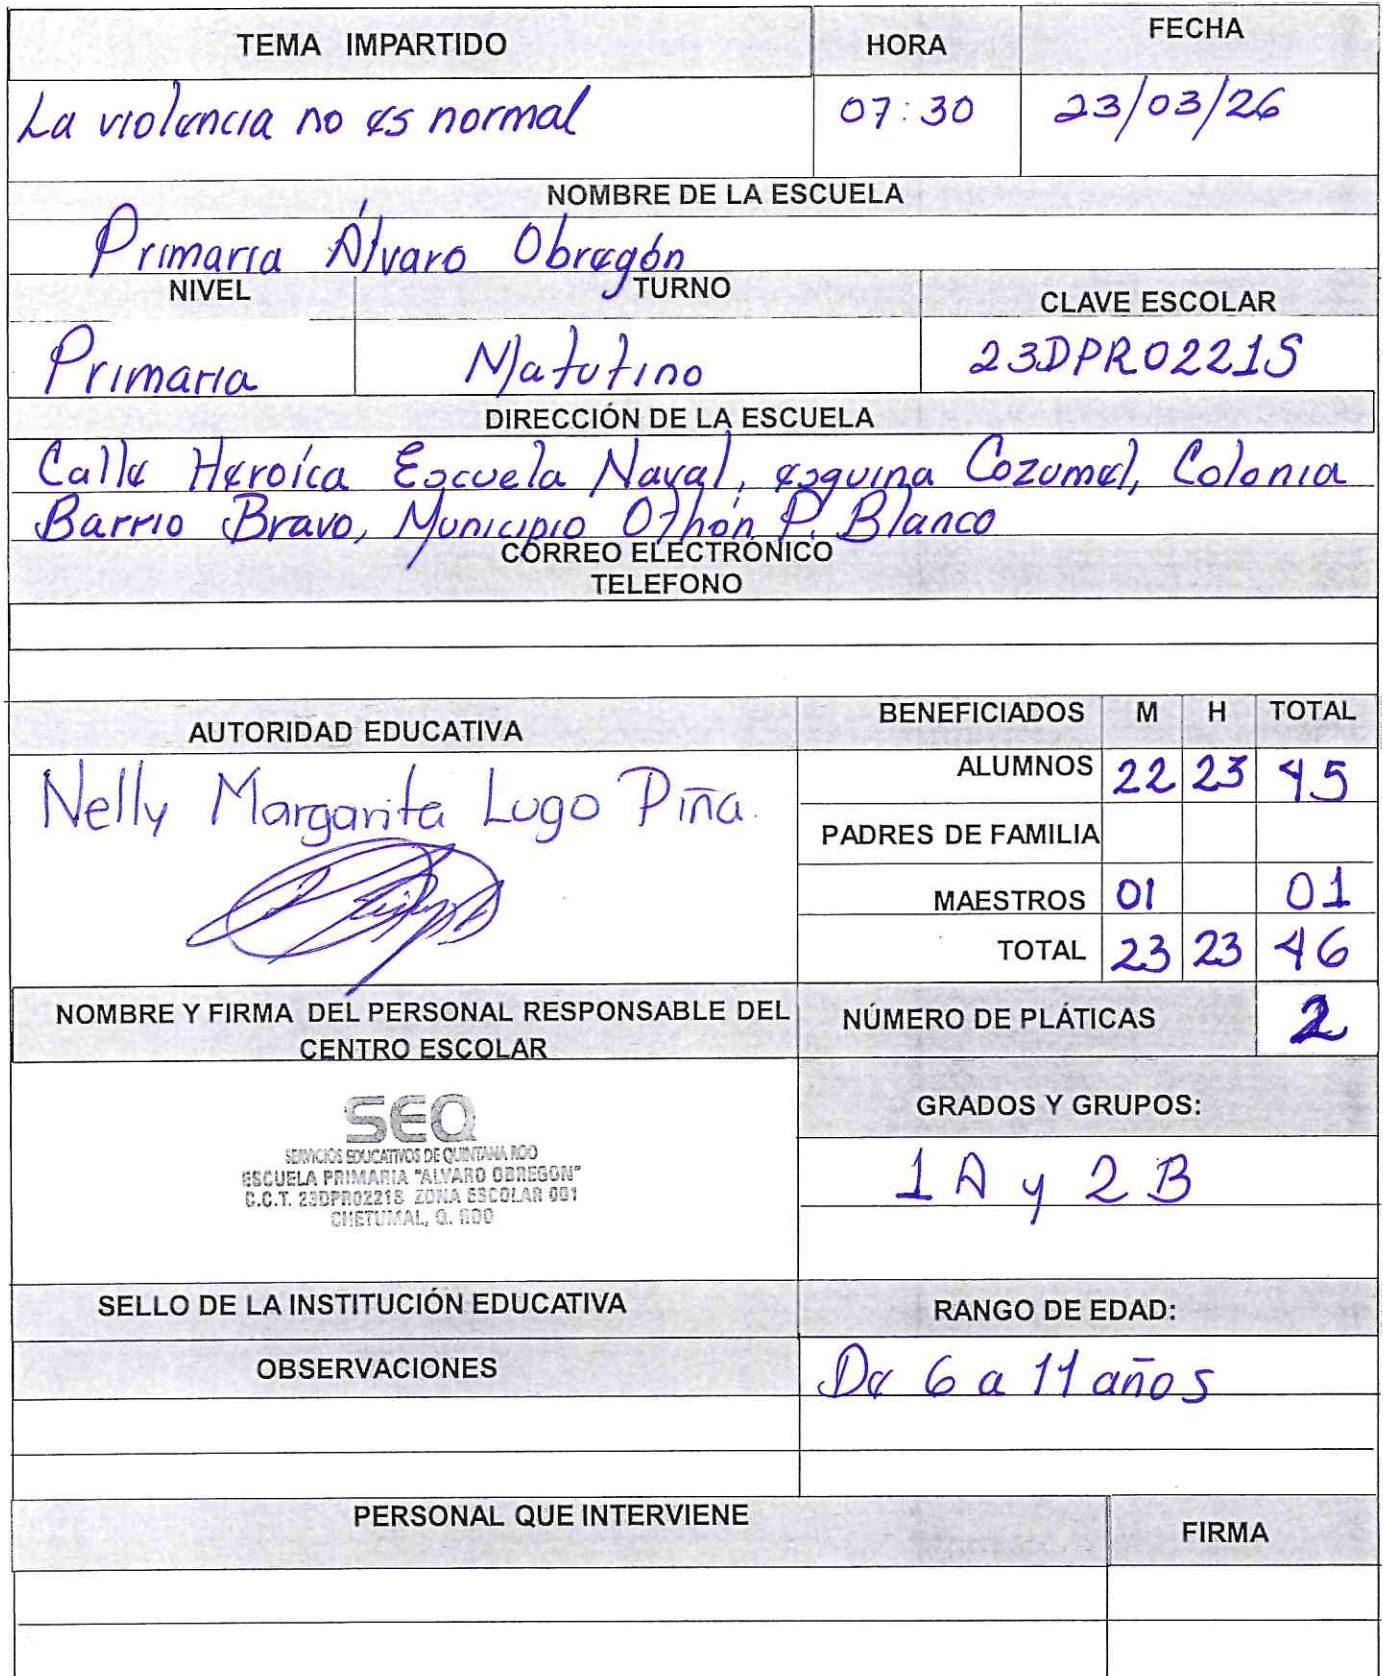 TEMA IMPARTIDO HORA FECHA
La violencia no es normal 07:30 23/03/26
NOMBRE DE LA ESCUELA
Primaria Álvaro Obregón
NIVEL TURNO CLAVE ESCOLAR
Primaria Matutino 23DPR0221S
DIRECCIÓN DE LA ESCUELA
Calle Heroica Escuela Naval, esquina Cozumel, Colonia
Barrio Bravo, Municipio Othón P. Blanco
CORREO ELECTRÓNICO
TELEFONO
AUTORIDAD EDUCATIVA BENEFICIADOS M H TOTAL
Nelly Margarita Lugo Piña. ALUMNOS 22 23 45
PADRES DE FAMILIA
MAESTROS 01 01
TOTAL 23 23 46
NOMBRE Y FIRMA DEL PERSONAL RESPONSABLE DEL
CENTRO ESCOLAR
NÚMERO DE PLÁTICAS 2
SEQ
SERVICIOS EDUCATIVOS DE QUINTANA ROO
ESCUELA PRIMARIA "ALVARO OBREGON"
C.C.T. 23DPR0221S ZONA ESCOLAR 001
CHETUMAL, Q. ROO
GRADOS Y GRUPOS:
1 A y 2 B
SELLO DE LA INSTITUCIÓN EDUCATIVA RANGO DE EDAD:
OBSERVACIONES De 6 a 11 años
PERSONAL QUE INTERVIENE FIRMA